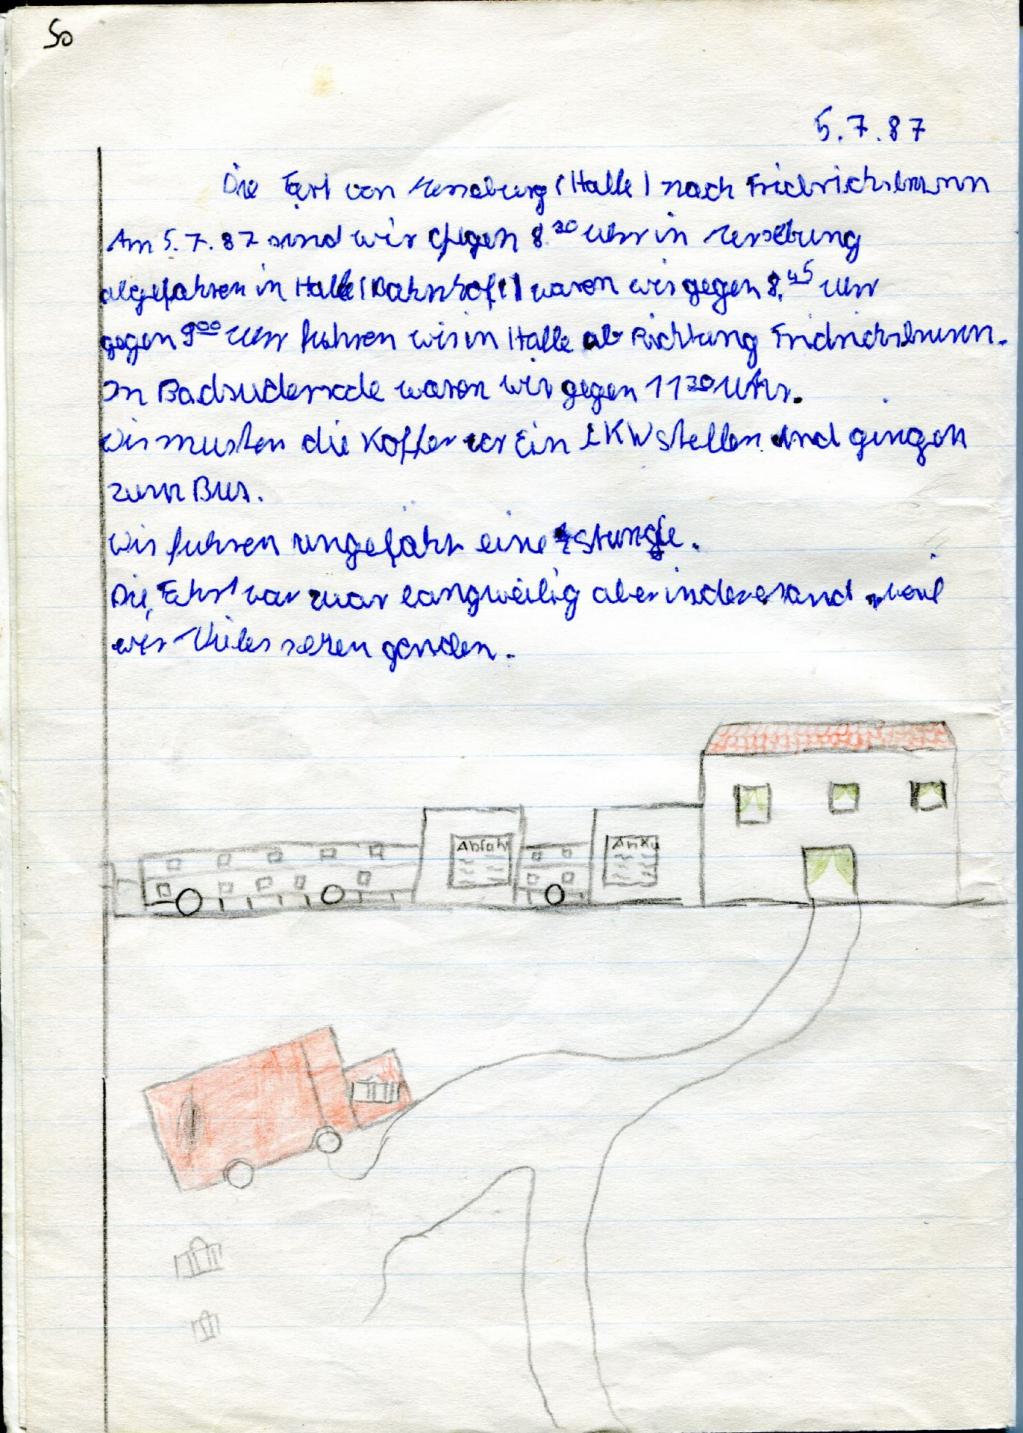 So
5.7.87
Die Fart von Merseburg (Halle) nach Fridrichsbrunn
Am 5.7.87 sind wir gegen 8.30 Uhr in Merseburg
abgefahren in Halle (Bahnhof) waren wir gegen 8.45 Uhr
gegen 9.00 Uhr fuhren wir in Halle ab Richtung Fridrichsbrunn.
In Badsuderode waren wir gegen 11 30 Uhr.
Wir musten die Koffer vor ein LKW stellen und gingen
zum Bus.
Wir fuhren ungefähr eine Stunde.
Die Fahrt war zwar langweilig aber weil
wir vieles sehen .
Abfah
Anku